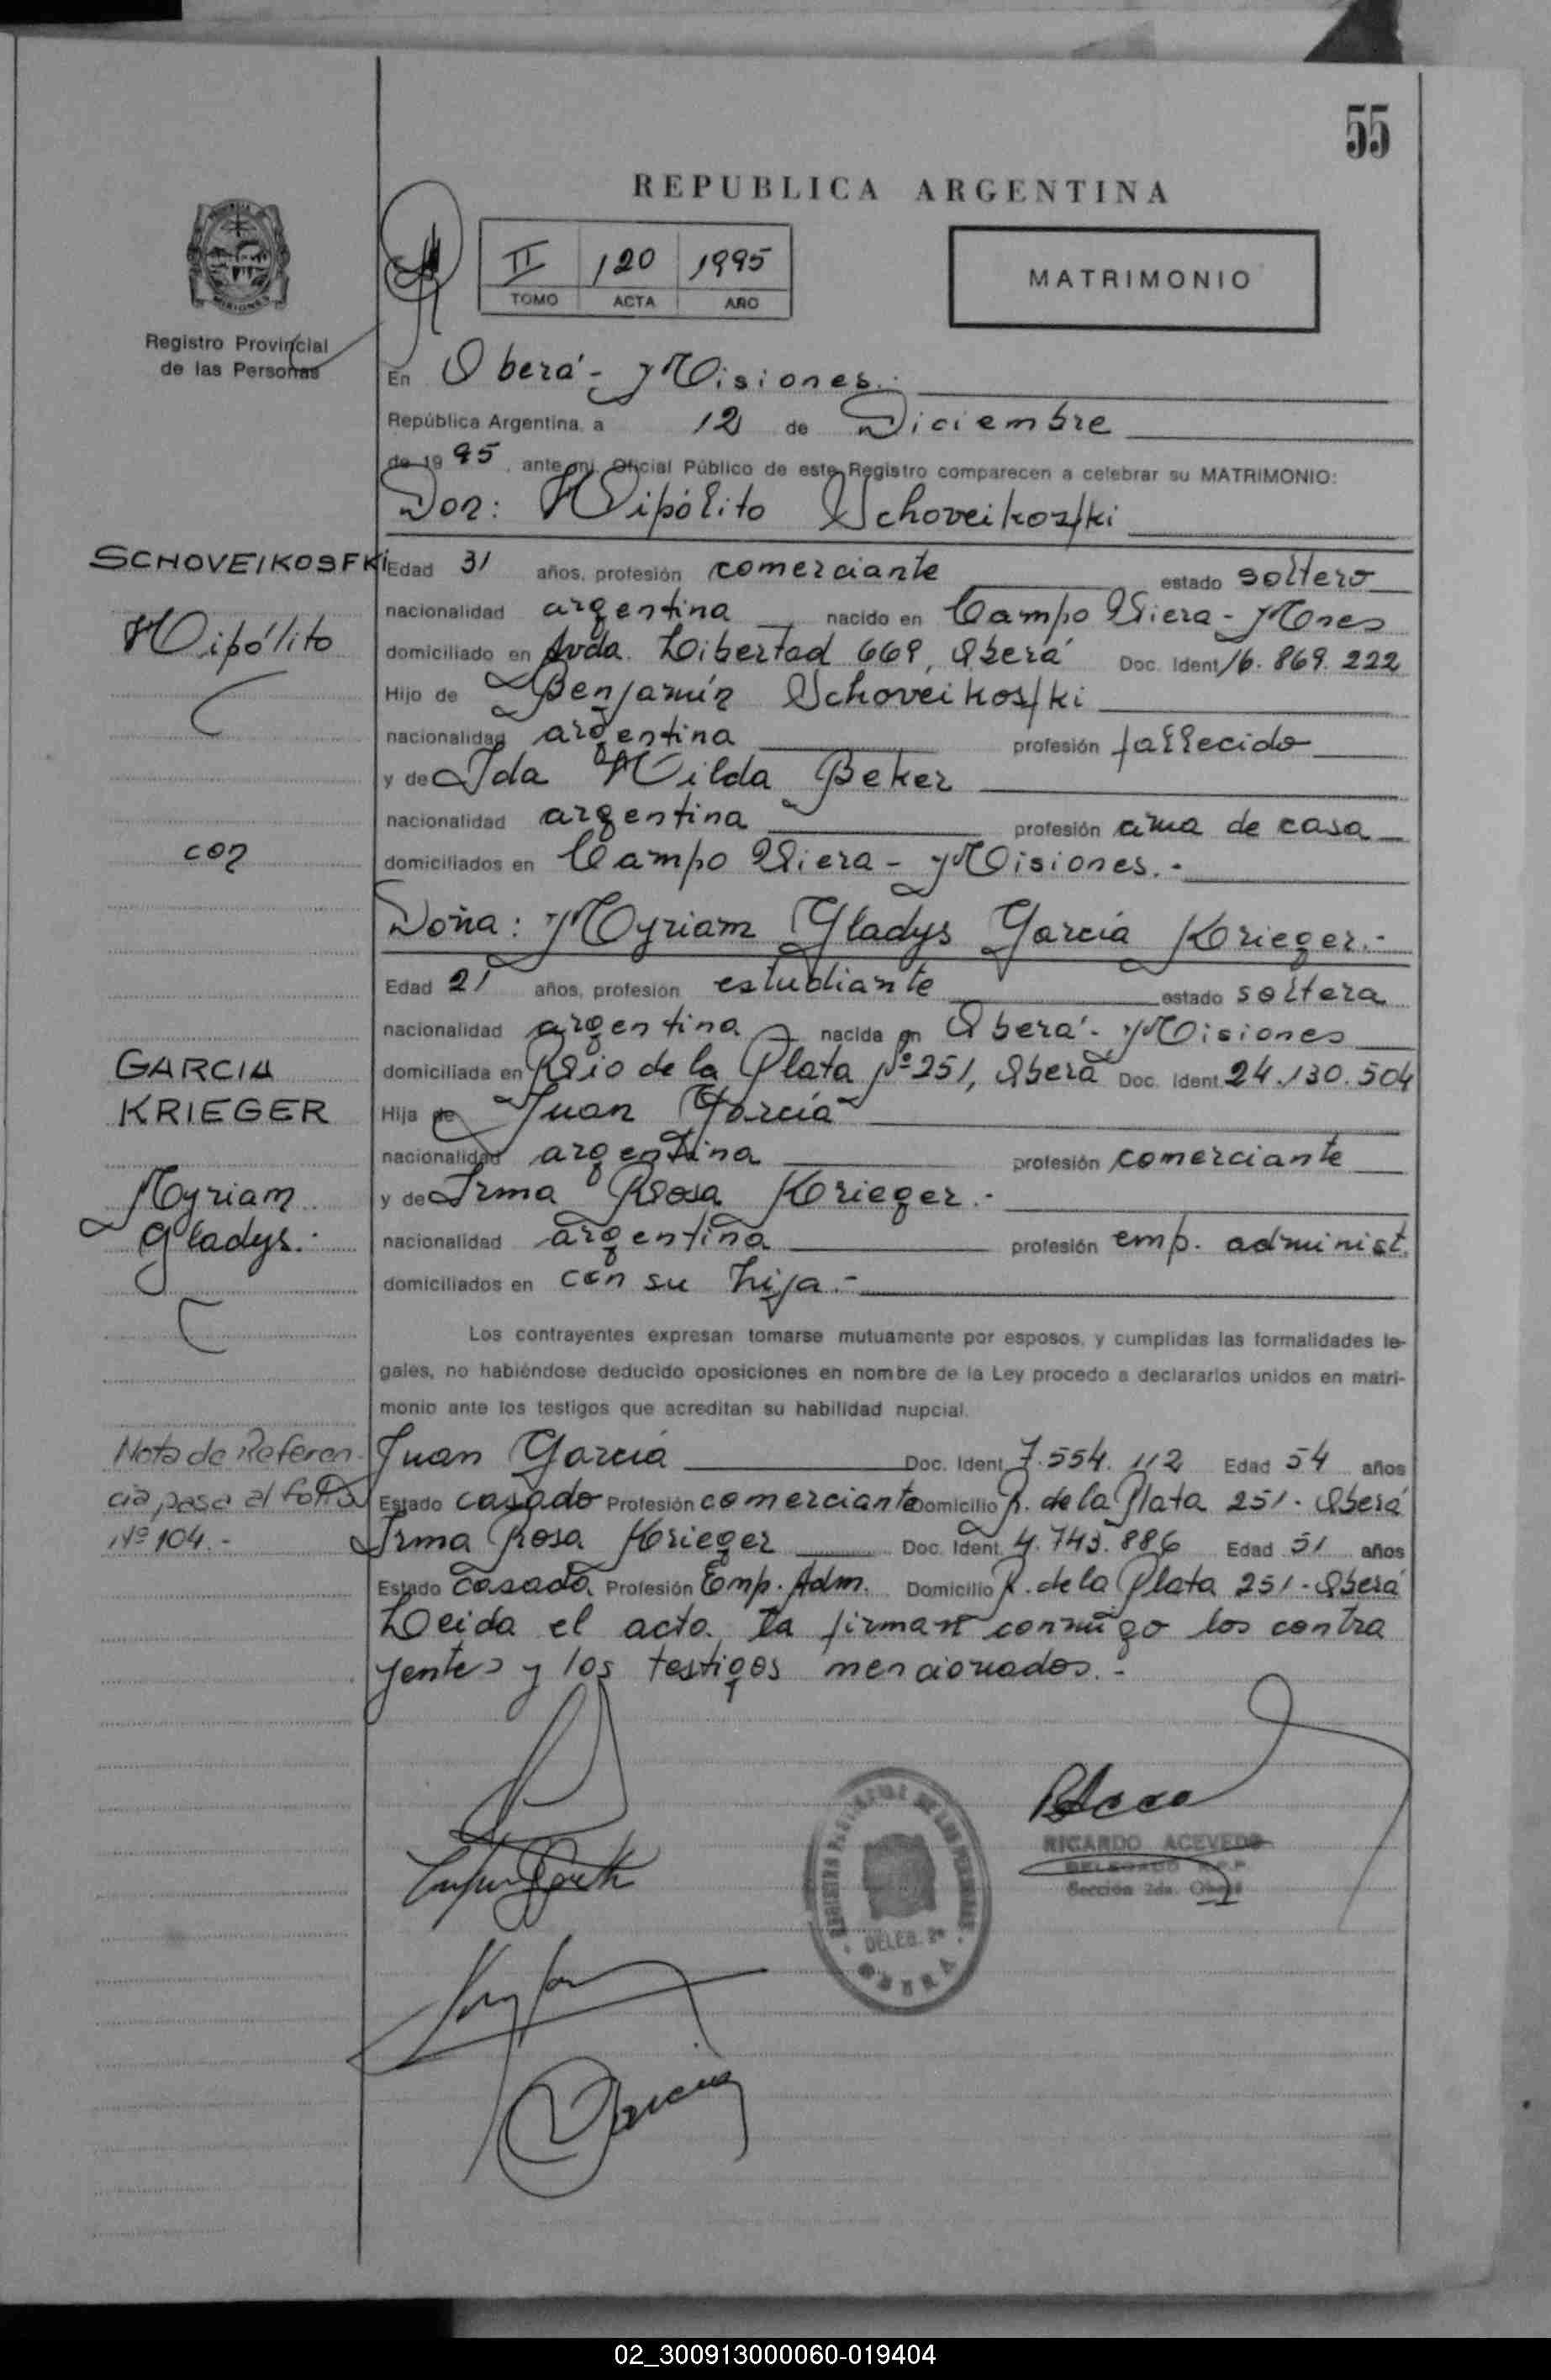 55
REPUBLICA ARGENTINA
II 120 1995
TOMO ACTA AÑO
MATRIMONIO
Registro Provincial
de las Personas
En Oberá - Misiones.-
República Argentina, a 12 de Diciembre
de 19 95, ante mí, Oficial Público de este Registro comparecen a celebrar su MATRIMONIO:
Don: Hipólito Schoveikosfki
SCHOVEIKOSFKI
Hipólito
Edad 31 años, profesión comerciante estado soltero
nacionalidad argentina nacido en Campo Viera - Mnes
domiciliado en Avda. Libertad 669, Oberá Doc. Ident 16.869.222
Hijo de Benjamín Schoveikosfki
nacionalidad argentina profesión fallecido
y de Ida Hilda Beker
nacionalidad argentina profesión ama de casa
con
domiciliados en Campo Viera - Misiones.-
Doña: Myriam Gladys García Krieger.-
Edad 21 años, profesión estudiante estado soltera
nacionalidad argentina nacida en Oberá - Misiones
GARCIA
KRIEGER
Myriam
Gladys.-
domiciliada en Río de la Plata Nº 251, Oberá Doc. Ident. 24.130.504
Hija de Juan García
nacionalidad argentina profesión comerciante
y de Irma Rosa Krieger.-
nacionalidad argentina profesión emp. administ.
domiciliados en con su hija.-
Los contrayentes expresan tomarse mutuamente por esposos, y cumplidas las formalidades le-
gales, no habiéndose deducido oposiciones en nombre de la Ley procedo a declararlos unidos en matri-
monio ante los testigos que acreditan su habilidad nupcial.
Nota de Referen-
cia, pasa al folio
Nº 104.-
Juan García Doc. Ident. 7.554.112 Edad 54 años
Estado casado Profesión comerciante Domicilio R. de la Plata 251 - Oberá
Irma Rosa Krieger Doc. Ident. 4.743.886 Edad 51 años
Estado casada Profesión Emp. Adm. Domicilio R. de la Plata 251 - Oberá
Leida el acta, la firman conmigo los contra
yentes y los testigos mencionados.-
RICARDO ACEVEDO
DELEGADO R.P.P.
Sección 2da. Oberá
DELEG. 2ª
OBERA
02_300913000060-019404